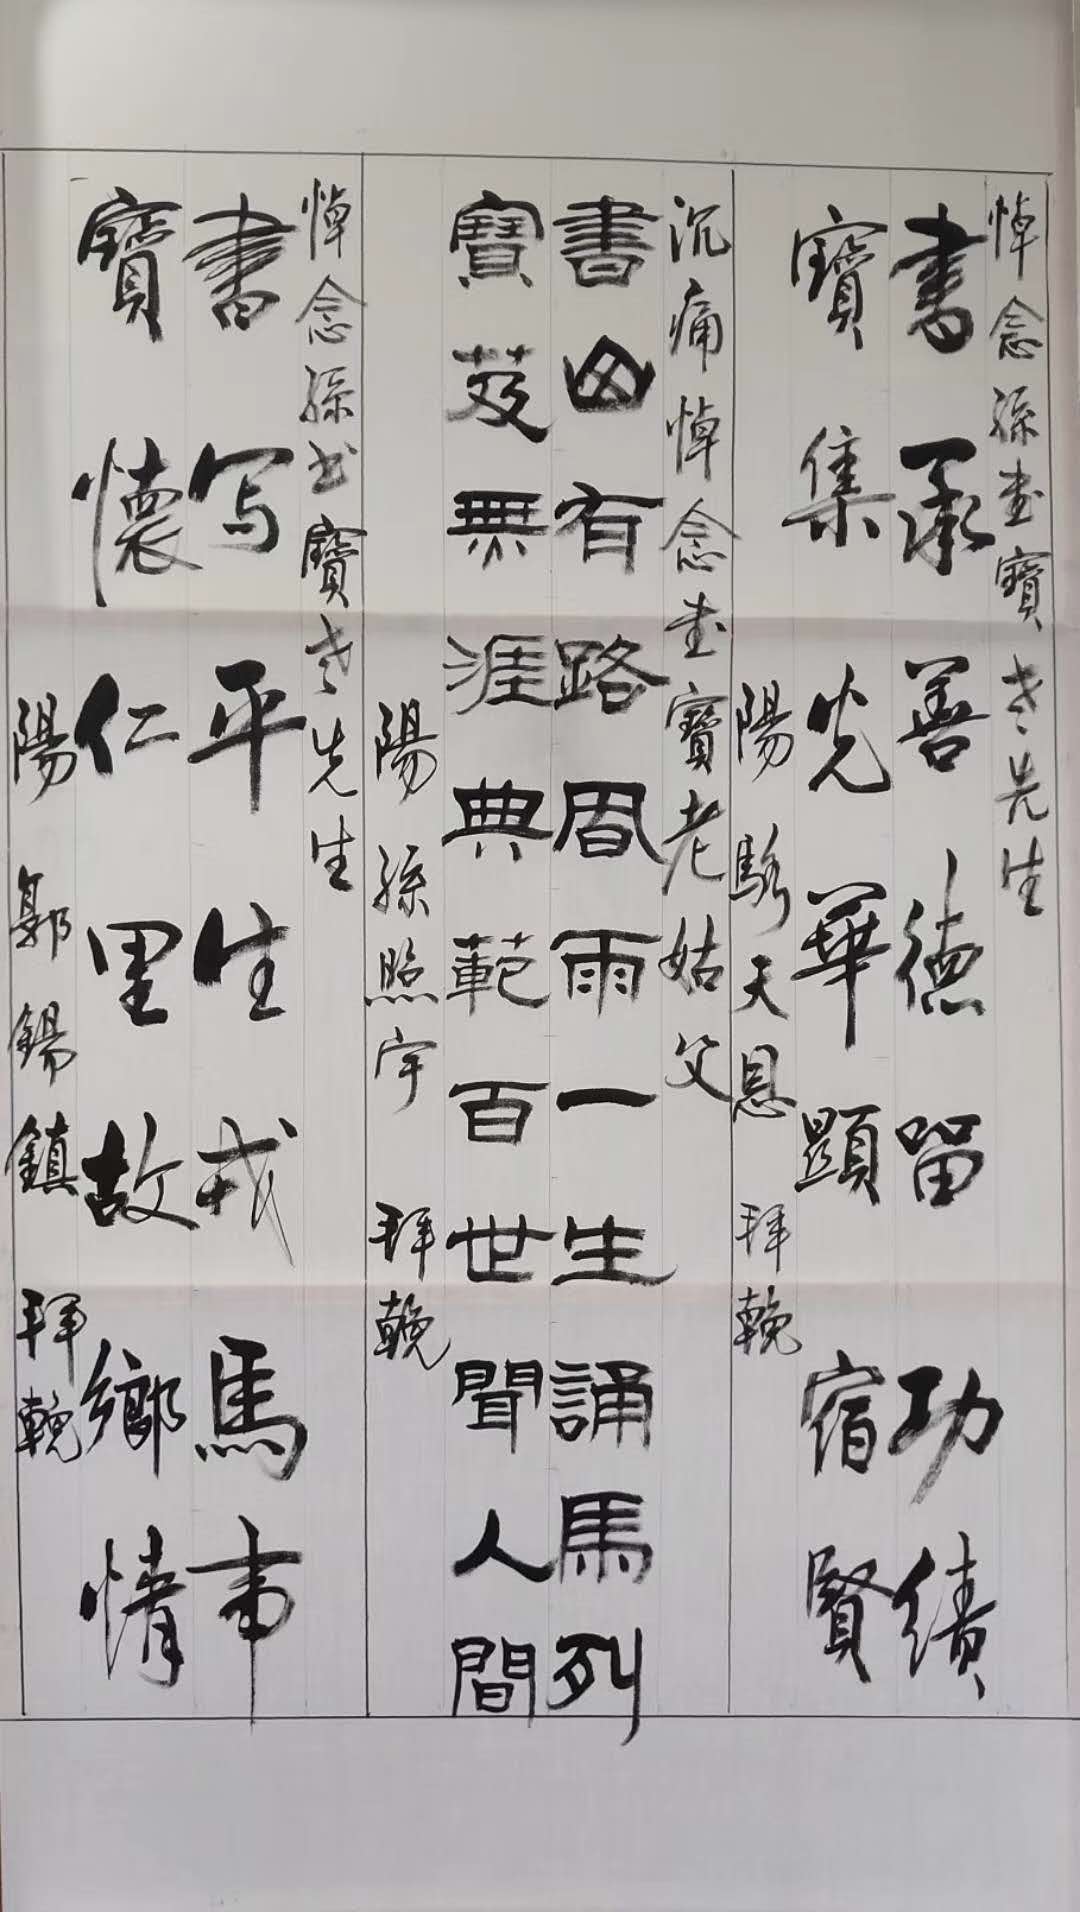 悼念孫書寶老先生
書承善德留功績
寶集光華顯宿賢
陽 駱天恩 拜輓
沉痛悼念書寶老姑父
書山有路周雨一生誦馬列
寶芨無涯典範百世聞人間
陽 孫照宇 拜輓
悼念孫书寶老先生
書写平生戎馬事
寶懷仁里故鄉情
陽 郭錫鎮 拜輓